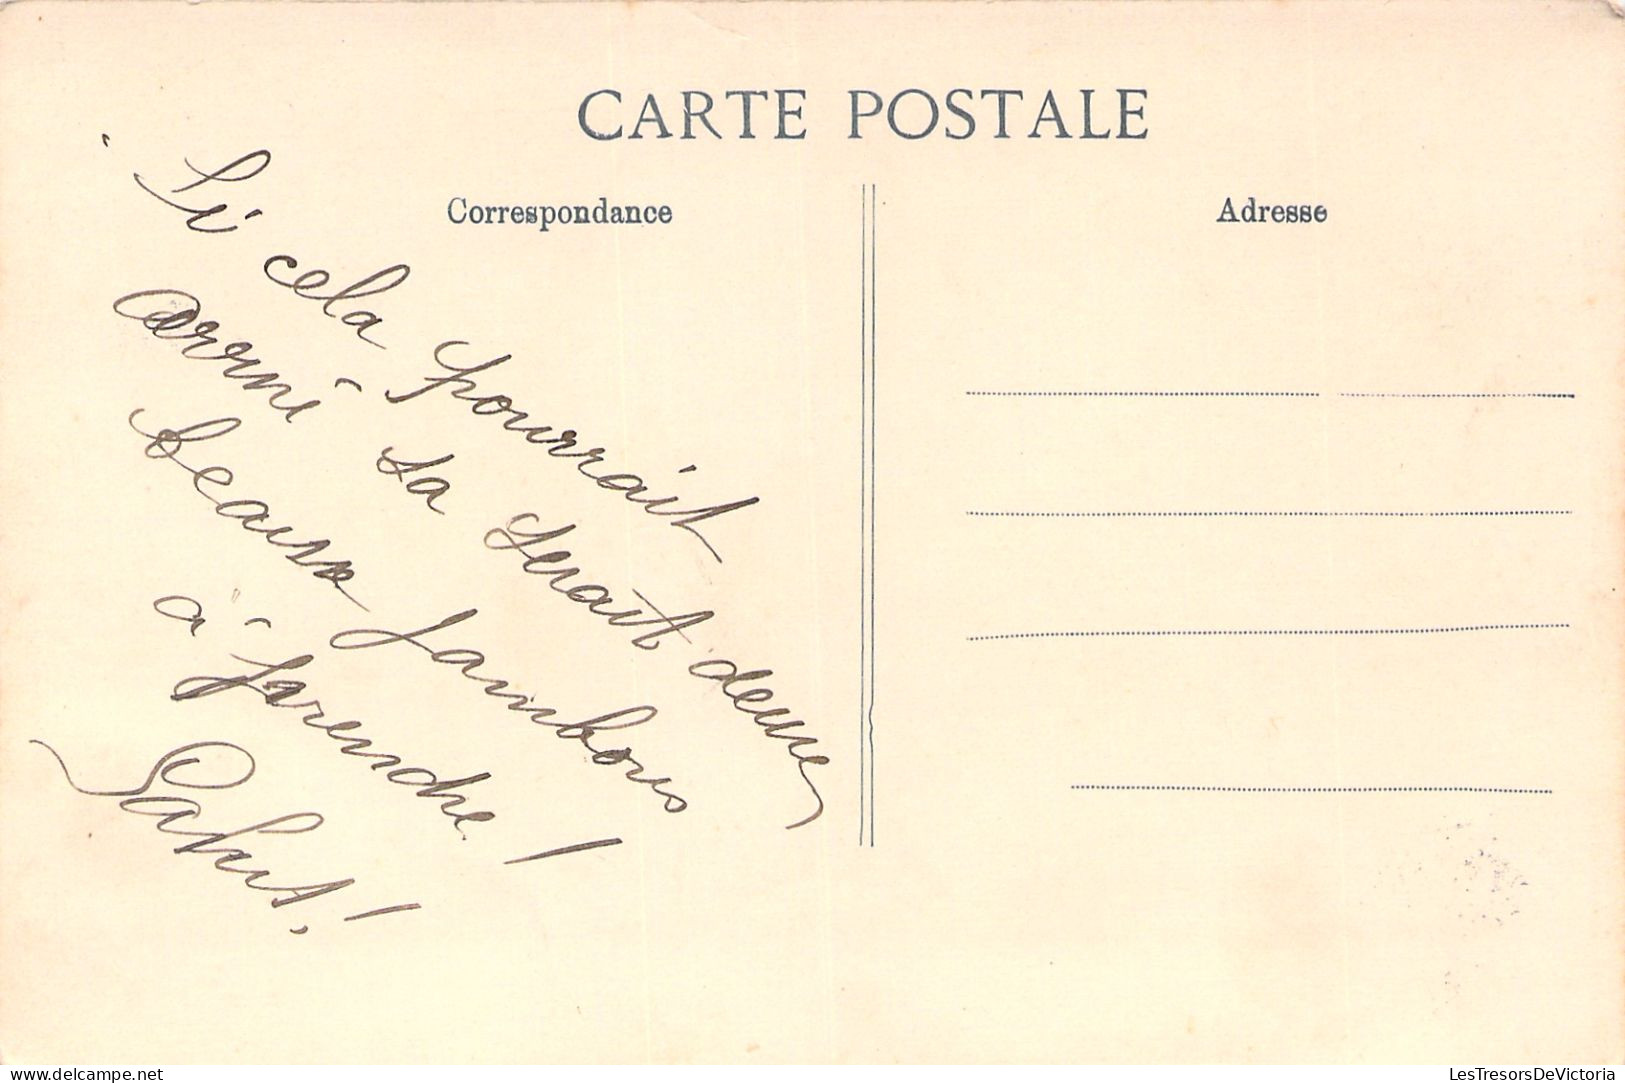 CARTE POSTALE
Correspondance
Adresse
Si cela pourrait
arrivé sa serait deux
beaux jambons
à prendre !
Salut !
delcampe.net
LesTresorsDeVictoria